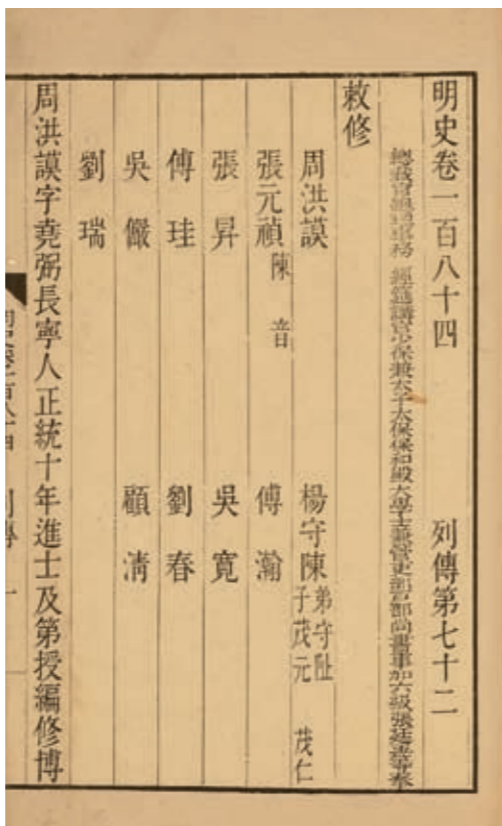 明史卷一百八十四 列傳第七十二
總裁官總理事務 經筵講官少保兼太子太保保和殿大學士兼管吏部戶部尚書事加六級張廷玉等奉
敕修
周洪謨 楊守陳 弟守阯 子茂元 茂仁
張元禎 陳音 傅瀚
張昇 吳寬
傅珪 劉春
吳儼 顧清
劉瑞
周洪謨字堯弼長寧人正統十年進士及第授編修博